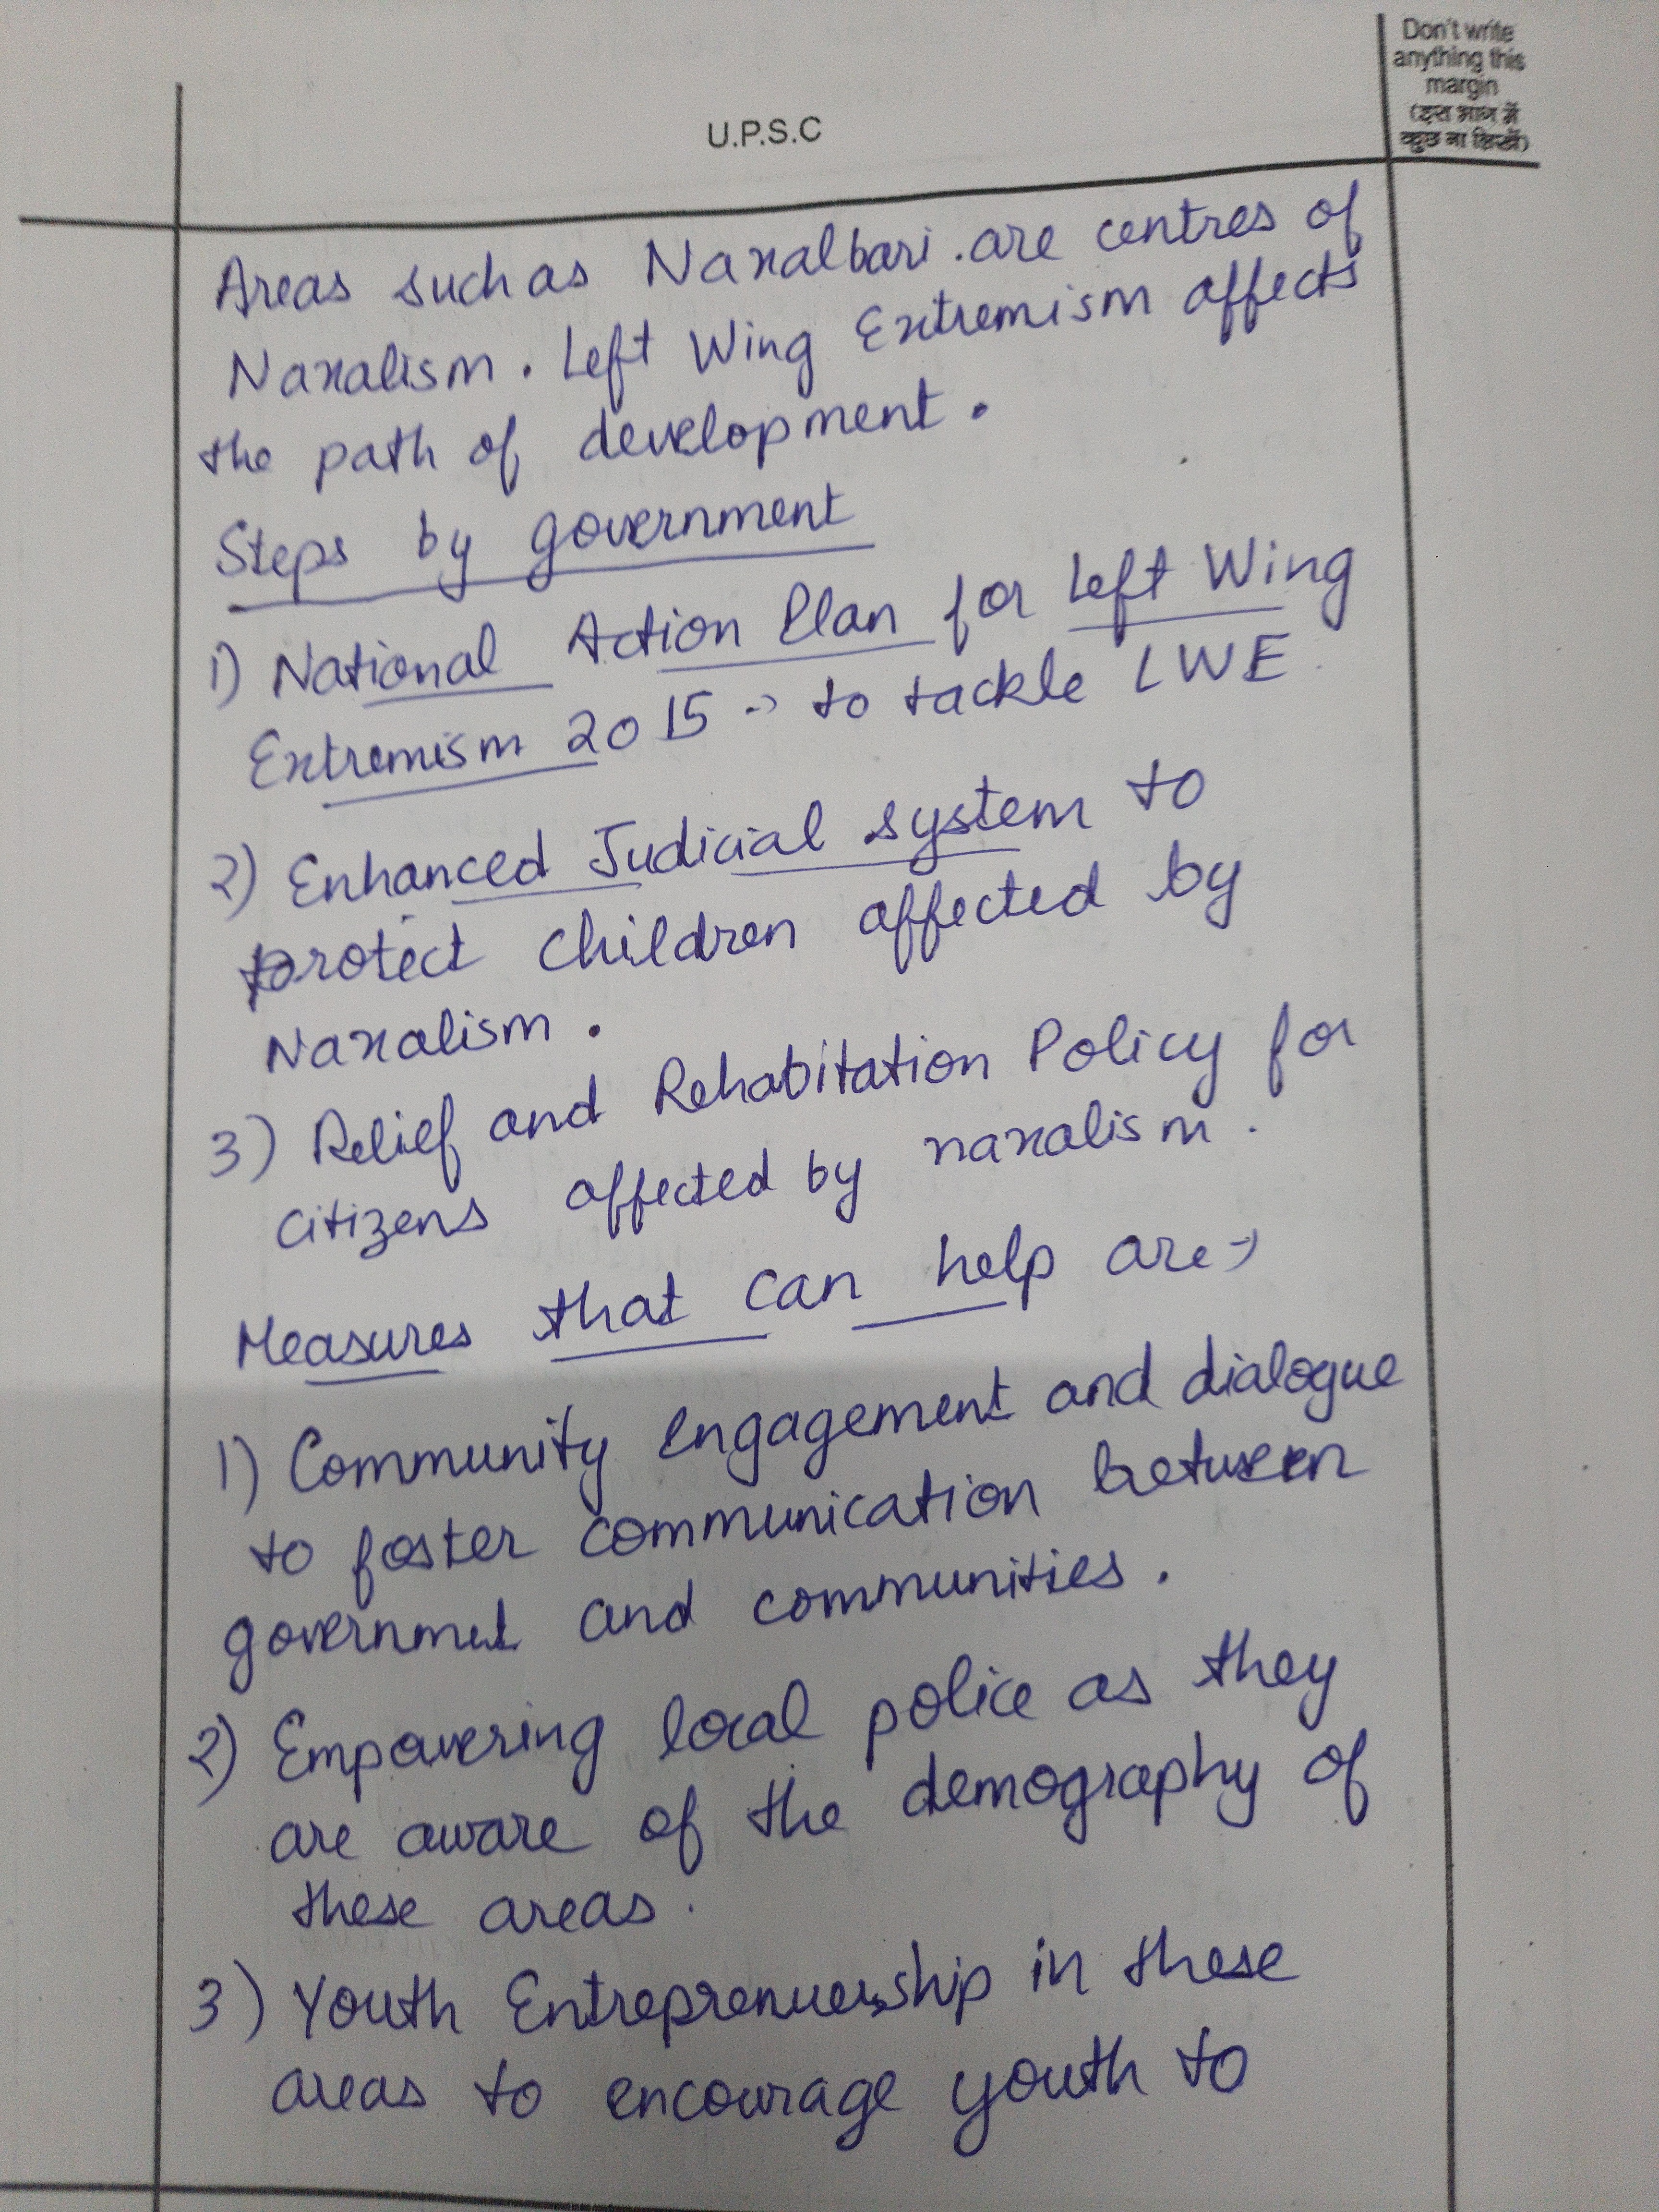 Don't write
anything this
margin
(इस भाग में
कुछ ना लिखें)
U.P.S.C
Areas such as Naxalbari are centres of
Naxalism. Left Wing Extremism affects
the path of development.
Steps by government
1) National Action Plan for Left Wing
Extremism 2015 → to tackle LWE
2) Enhanced Judicial system to
protect children affected by
Naxalism.
3) Relief and Rehabitation Policy for
citizens affected by naxalism.
Measures that can help are →
1) Community engagement and dialogue
to foster communication between
government and communities.
2) Empowering local police as they
are aware of the demography of
these areas.
3) Youth Entreprenuership in these
areas to encourage youth to